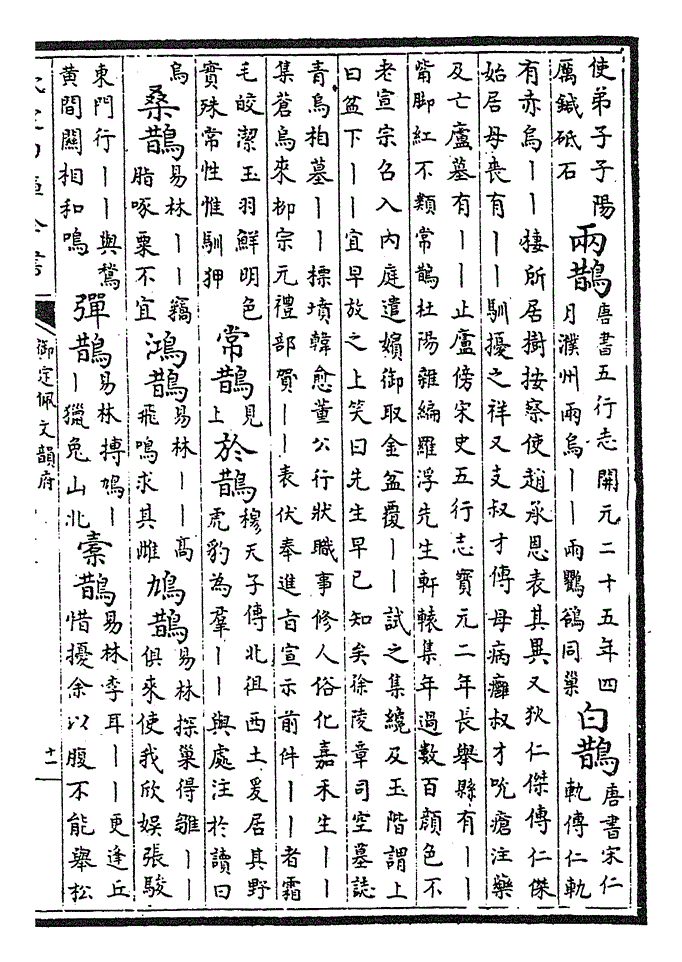 使弟子子陽厲鍼砥石 兩鵲 唐書五行志開元二十五年四月濮州兩烏丨丨兩鸜鵒同巢 白鵲 唐書宋仁軌傳仁軌
有赤烏丨丨棲所居樹按察使趙承恩表其異又狄仁傑傳仁傑
始居母喪有丨丨馴擾之祥又支叔才傳母病癰叔才吮瘡注藥
及亡廬墓有丨丨止廬傍宋史五行志寶元二年長舉縣有丨丨
觜脚紅不類常鵲杜陽雜編羅浮先生軒轅集年過數百顏色不
老宣宗召入內庭遣嬪御取金盆覆丨丨試之集纔及玉階謂上
曰盆下丨丨宜早放之上笑曰先生早已知矣徐陵章司空墓誌
青烏相墓丨丨標墳韓愈董公行狀職事修人俗化嘉禾生丨丨
集蒼烏來柳宗元禮部賀丨丨表伏奉進旨宣示前件丨丨者霜
毛皎潔玉羽鮮明色實殊常性惟馴狎 常鵲 見上 於鵲 穆天子傳北徂西土爰居其野虎豹為羣丨丨與處注於讀曰
烏 桑鵲 易林丨丨竊脂啄粟不宜 鴻鵲 易林丨丨高飛鳴求其雌 鳩鵲 易林探巢得雛丨丨俱來使我欣娛張駿
東門行丨丨與鶖黃間關相和鳴 彈鵲 易林搏鳩丨丨獵兔山北 橐鵲 易林李耳丨丨更逢丘惜擾余以腹不能舉松
御定佩文韻府
十一